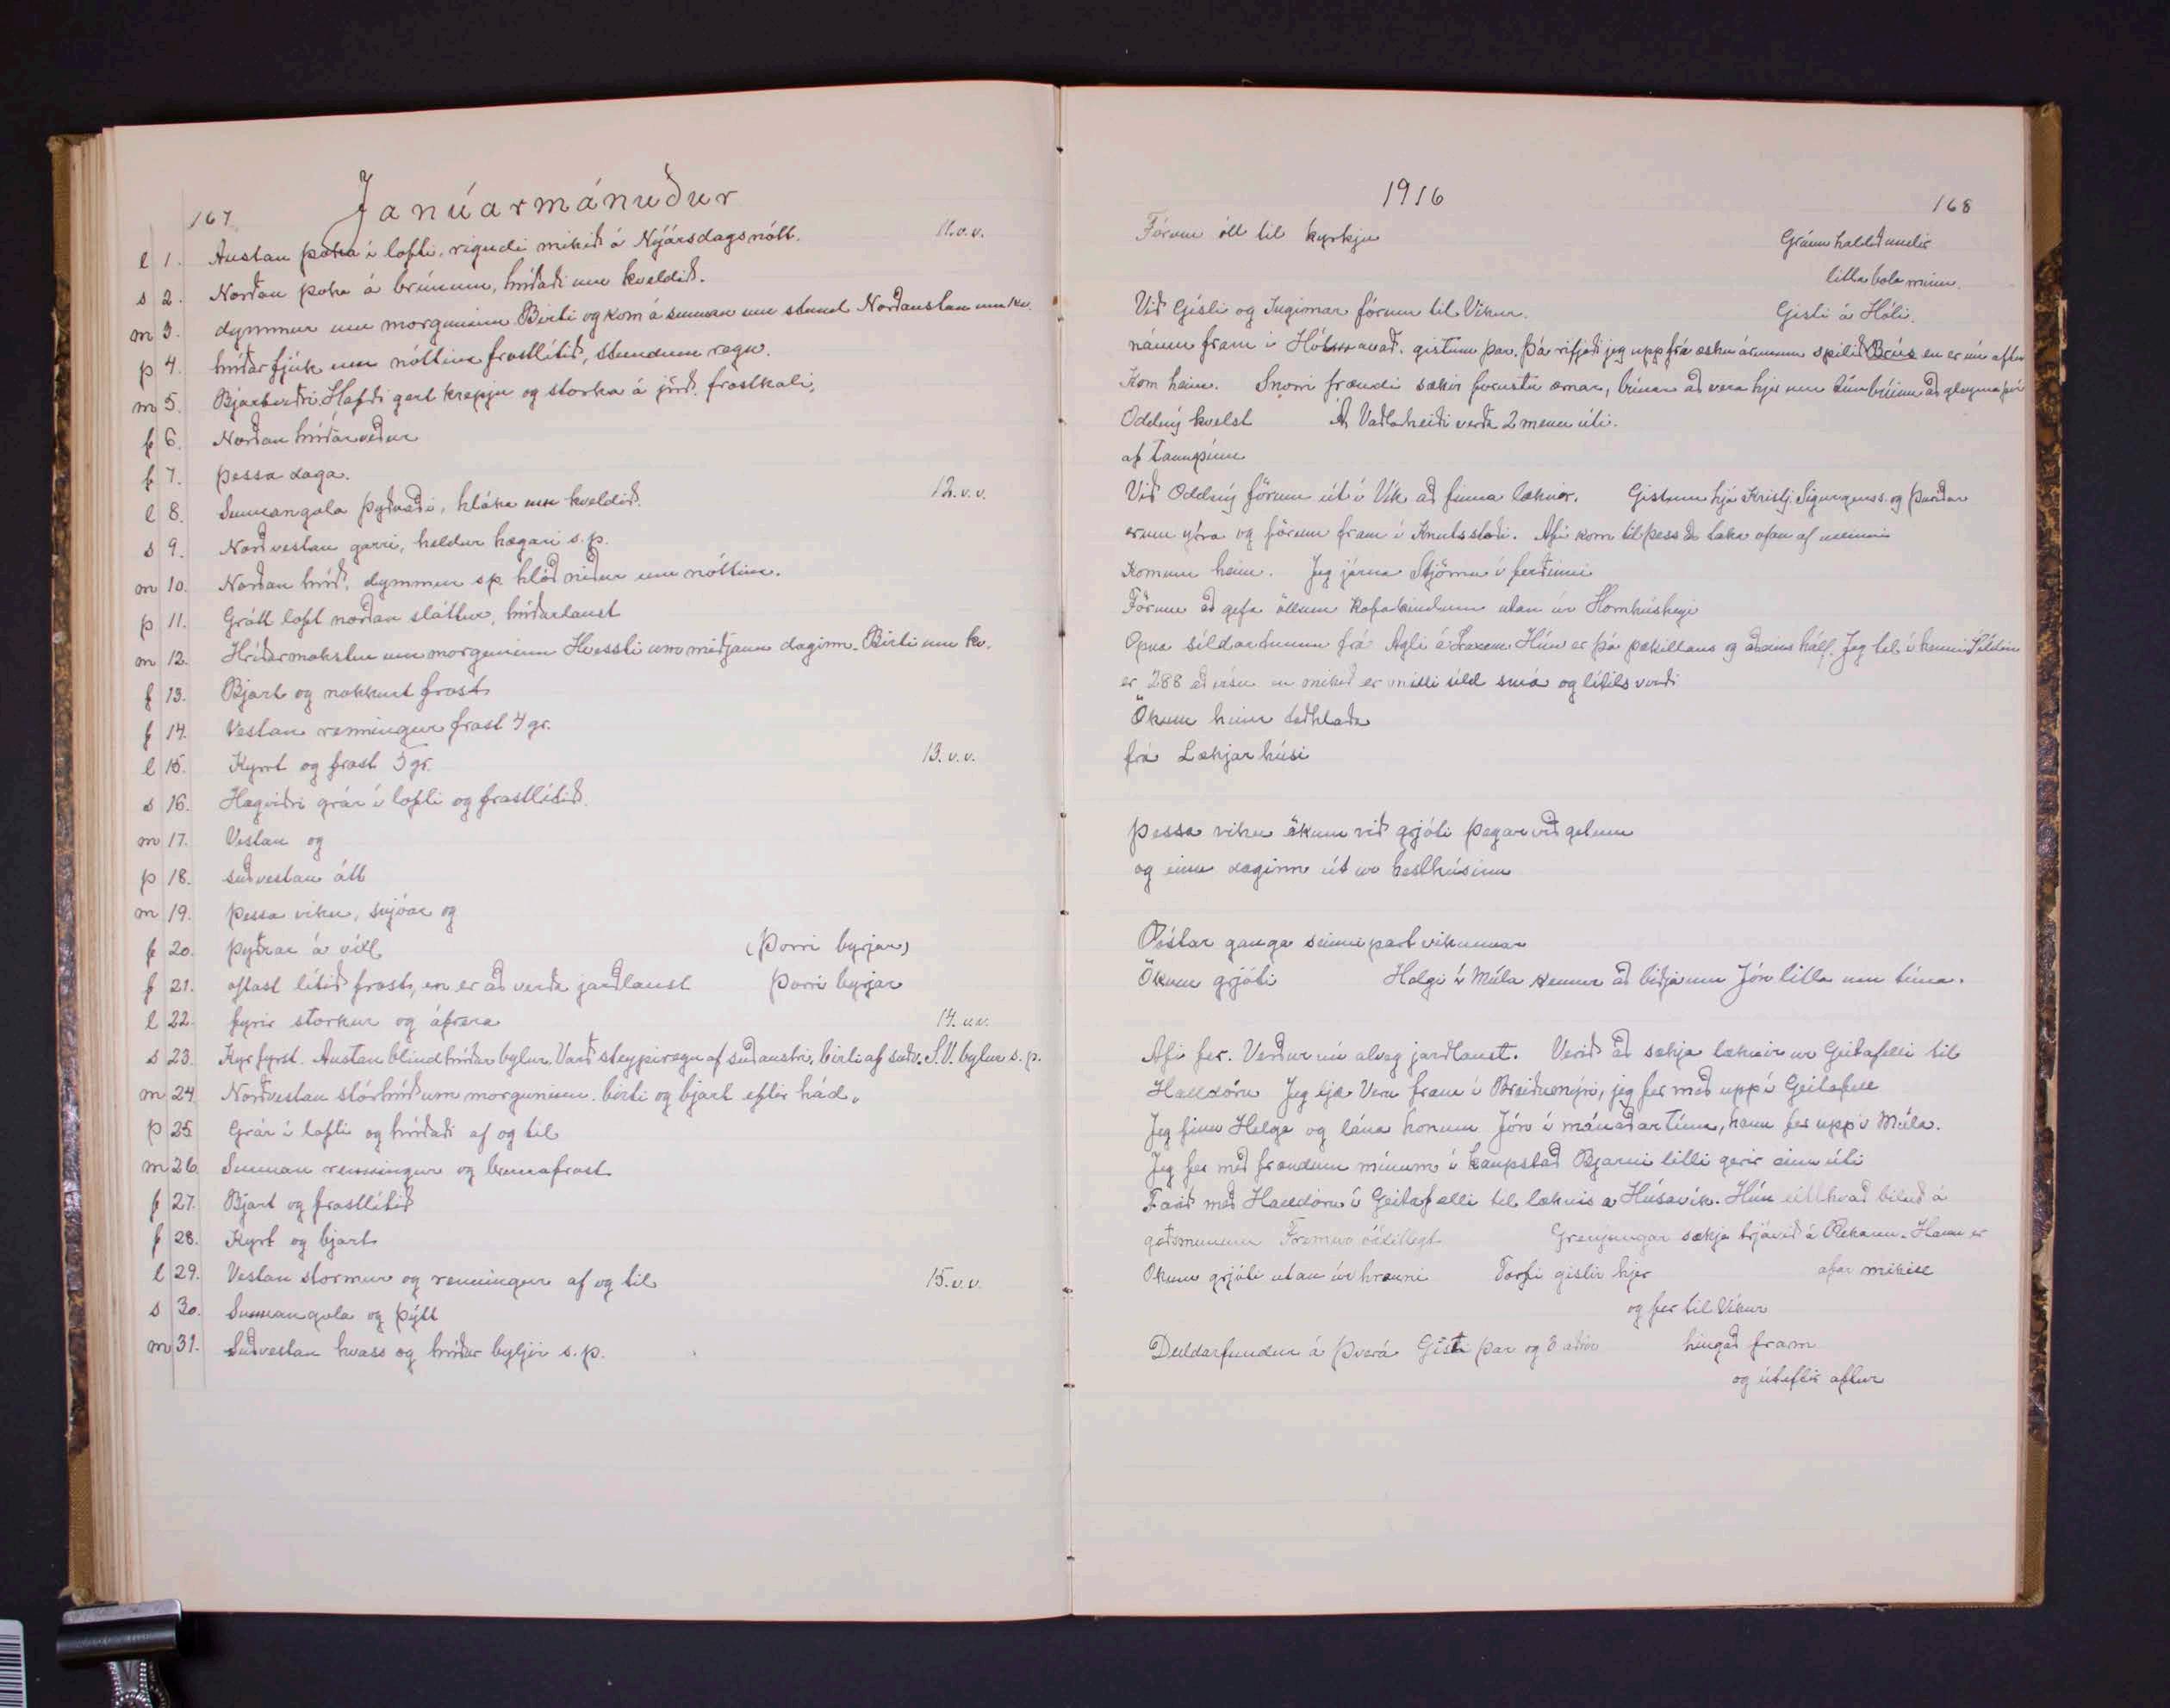 167
Janúarmánuður
l 1. Austan þoka í lofti, rigndi mikið á Nýársdagsnótt. 11.v.v.
s 2. Norðan þoka á brúnum, hríðaði um kveldið.
m 3. dymmur um morguninn Birti og kom á sunnan um stund Norðaustan um kv.
þ 4. hríðarfjúk um nóttina frostlítið, stundum regn.
m 5. Bjartviðri Hafði gert krepju og storka á jörð. frostkali,
f 6. Norðan hríðarveður
f 7. þessa daga.
l 8. Sunnangola þyðvaði, hláka um kveldið. 12.v.v.
s 9. Norðvestan garri, heldur hægari s.p.
m 10. Norðan hríð, dymmur sp hlóð niður um nóttina.
þ 11. Grátt loft norðan sláttur, hríðarlaust
m 12. Hríðarmokstur um morguninn Hvessti um miðjann daginn. Birti um kv.
f 13. Bjart og nokkurt frost
f 14. Vestan renningur frost 4 gr.
l 15. Kyrrt og frost 5 gr. 13.v.v.
s 16. Hægviðri grár í lofti og frostlítið
m 17. Vestan og
þ 18. suðvestan átt
m 19. þessa viku, snjóar og
f 20. þyðrar á víxl (Þorri byrjar)
f 21. oftast lítið frost, en er að verða jarðlaust Þorri byrjar
l 22. fyrir storkur og áfrera 14.v.v.
s 23. Kyr fyrst. Austan blindhríðar bylur. Varð steypiregn af suðaustri, birti af suðv. S.V. bylur s.p.
m 24 Norðvestan stórhríð um morguninn. birti og bjart eftir hád.
þ 25 Grár í lofti og hríðaði af og til
m 26 Sunnan renningur og brunafrost
f 27. Bjart og frostlítið
f 28. Kyrt og bjart
l 29. Vestan stormur og renningur af og til 15.v.v.
s 30. Sunnangola og þýtt
m 31. Suðvestan hvass og hríðar byljir s.p.
1916
168
Fórum öll til kyrkju Gránu haldið undir
litla bola minn.
Við Gísli og Ingimar fórum til Víkur. Gisti á Hóli.
fram í gistum þar. Þá rifjaði jeg upp frá æsku árunum spilið Brús en er nú aftur
Kom heim. Snorri frændi sækir forustu ærnar, búnar að vera hjer um að gleyma því
Oddný kvelst Á Vaðlaheiði verða 2 menn úti.
af tannpínu
Við Oddný förum út í Vík að finna læknir. Gistum hjá Kristj. Sigurgeirss. og Þuríður
erum og förum fram í Knútsstaði. Afi kom til þess að taka ofan af
Komum heim. Jeg járna Stjörnu í ferðinni
Förum að gefa öllum kofakindum utan úr Hornhúsheyi
Opna síldartunnu frá Agli á Laxam. Hún er þá pækillaus og aðeins hálf. Jeg tel í henni Síldin
er 288 að vísu en mikið er milli síld smá og lítils virði
Ökum heim taðhlaða
frá Lækjar húsi
þessa viku ökum við grjóti þegar við getum
og einn daginn út úr hesthúsinu
Póstar ganga seinni part vikunnar
Ökum grjóti Helgi í Múla kemur að biðja um Jón litla um tíma.
Afi fer. Verður nú alveg jarðlaust. Verið að sækja læknir úr Geitafelli til
Halldóru Jeg ljæ Veru fram í Breiðumýri, jeg fer með upp í Geitafell
Jeg finn Helga og lána honum Jón í mánaðartíma, hann fer upp í Múla.
Jeg fer með frændum mínum í kaupstað Bjarni litli gerir einn úti
Farið með Halldóru í Geitafelli til læknis a Húsavík. Hún eitthvað biluð á
geðsmunum Grenjungar sækja trjávið á Bakann. Hann er
Ökum grjóti utan úr hrauni Torfi gistir hjer afar mikill
og fer til Víkur
Deildarfundur á Þverá Gisti þar og 8 aðrir hingað fram
og úteftir aftur